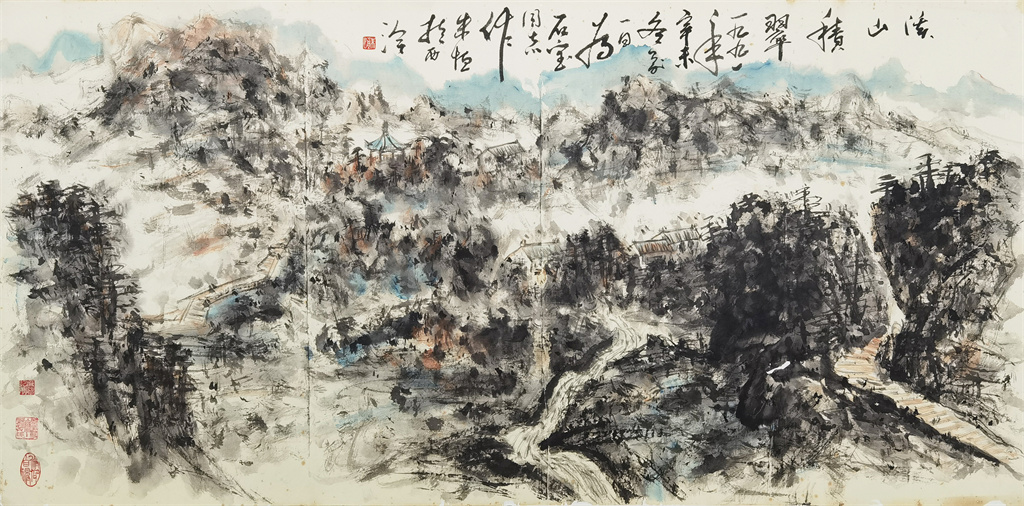 溪
山
積
翠
一九九一
年
辛未
冬前
一日
为
石宝
同志
作
朱恒
於西
泠